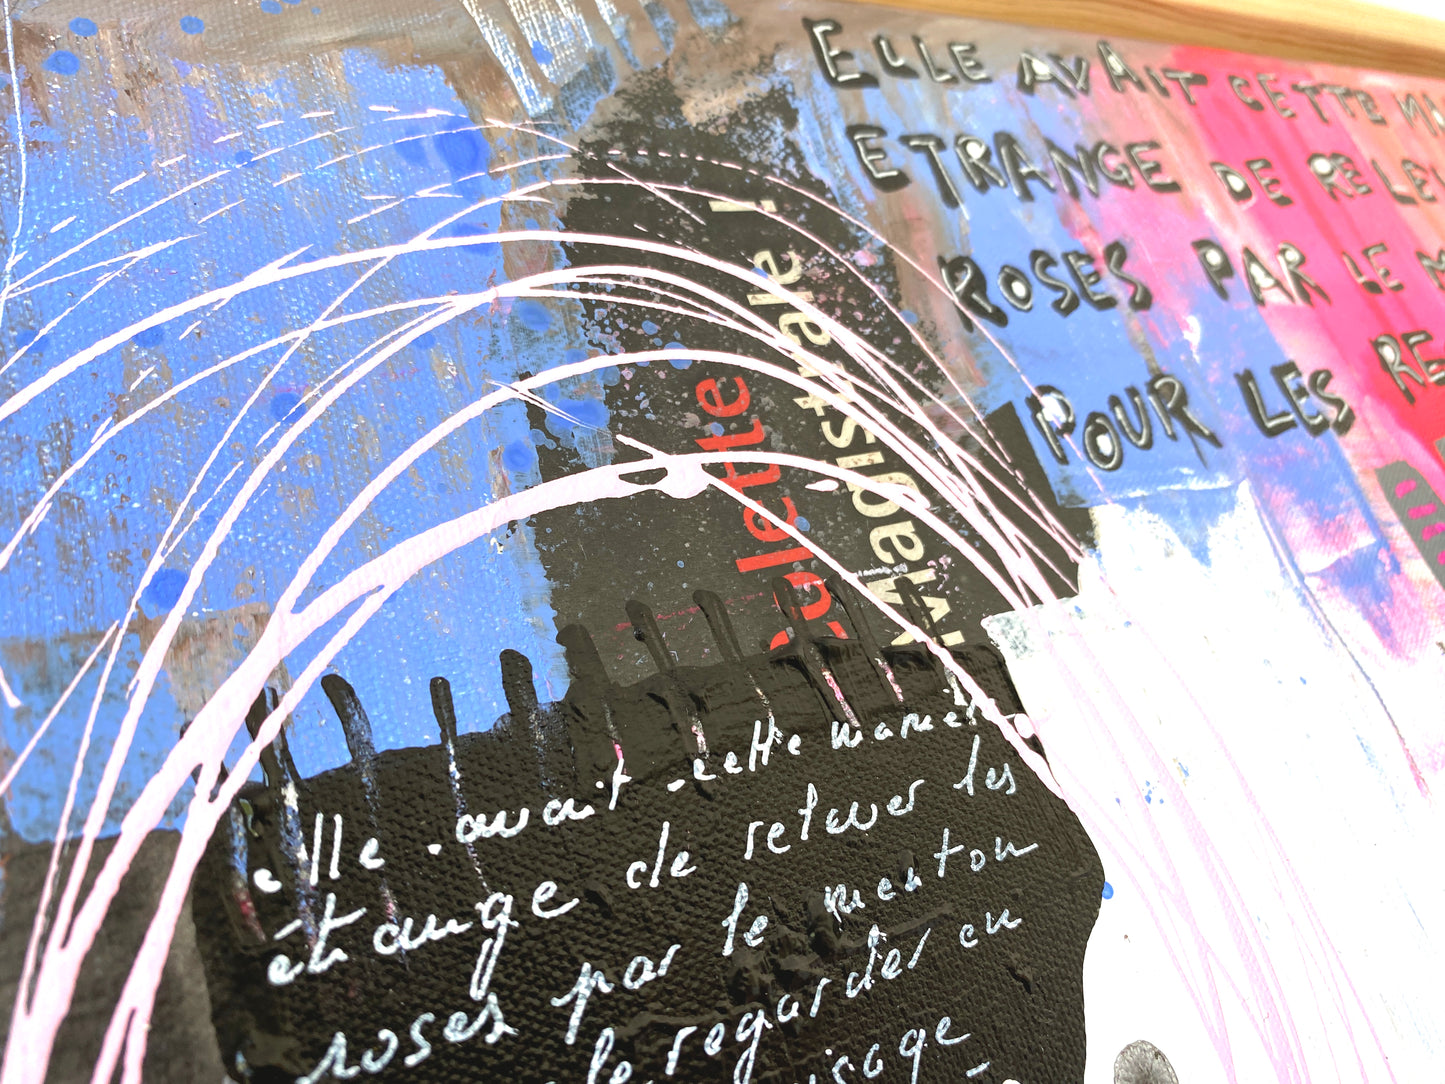 ELLE AVAIT CETTE
ETRANGE DE
ROSES PAR LE
POUR LES
Colette
Magistrale !
elle avait cette
étrange de relever les
roses par le menton
le regarder en
visage